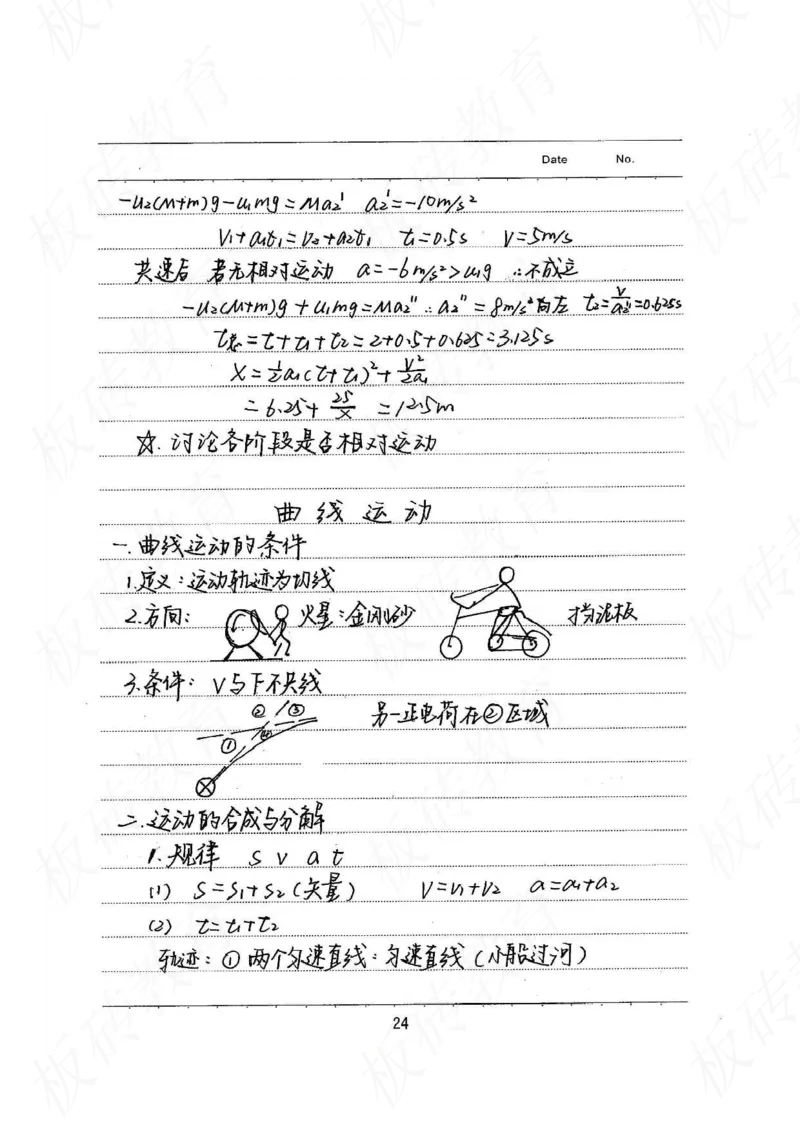 Date No.
-u₂(M+m)g-u₁mg=Ma₂' a₂'=-10m/s²
V₁+a₁t₁=V₂+a₂t₁ t₁=0.5s V=5m/s
共速后 若无相对运动 a=-6m/s²>u₁g ∴不成立
-u₂(M+m)g+u₁mg=Ma₂'' ∴a₂''=8m/s²向左 t₂=V/a₂''=0.625s
t总=t+t₁+t₂=2+0.5+0.625=3.125s
X=½a₁(t+t₁)²+V²/2a₁
=6.25+25/X =12.5m
☆.讨论各阶段是否相对运动
曲线运动
一.曲线运动的条件
1.定义:运动轨迹为切线
2.方向: 火星:金刚砂 挡泥板
3.条件: V与F不共线
② ③ 另一正电荷在②区域
① ④
二.运动的合成与分解
1.规律 s v a t
(1) S=S₁+S₂(矢量) V=V₁+V₂ a=a₁+a₂
(2) t=t₁+t₂
轨迹:①两个匀速直线:匀速直线(小船过河)
24
板砖教育